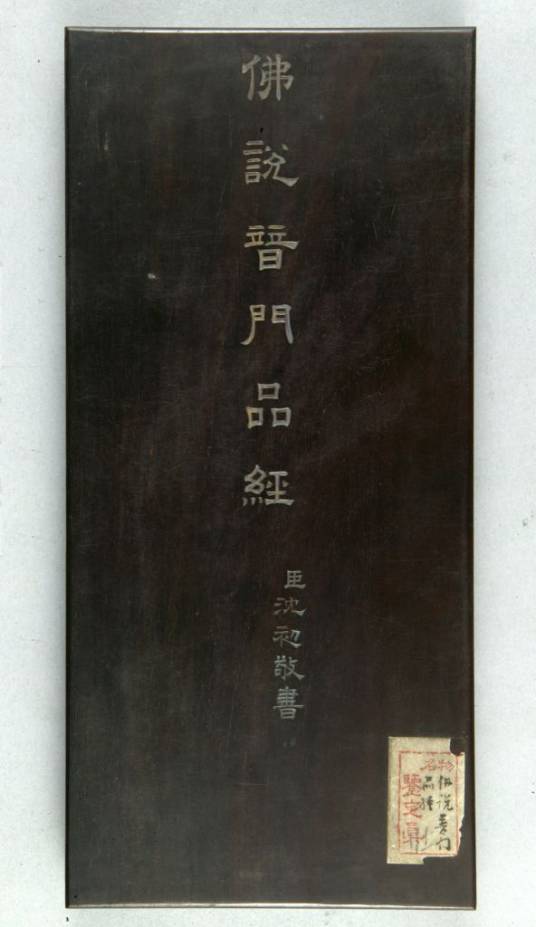 佛說普門品經
臣沈初敬書
名物
佛說普門
品經